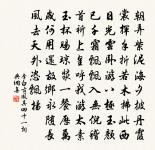 朝弄紫泥海夕披丹霞
裳揮手折若木拂此西
日光雲臥遊八極玉顏
已千霜飄飄入無倪稽
首祈上皇呼我遊太素
玉杯賜瓊漿一餐歷萬
歲何用還故鄉永隨長
風去天外恣飄揚
李白古風其四十一